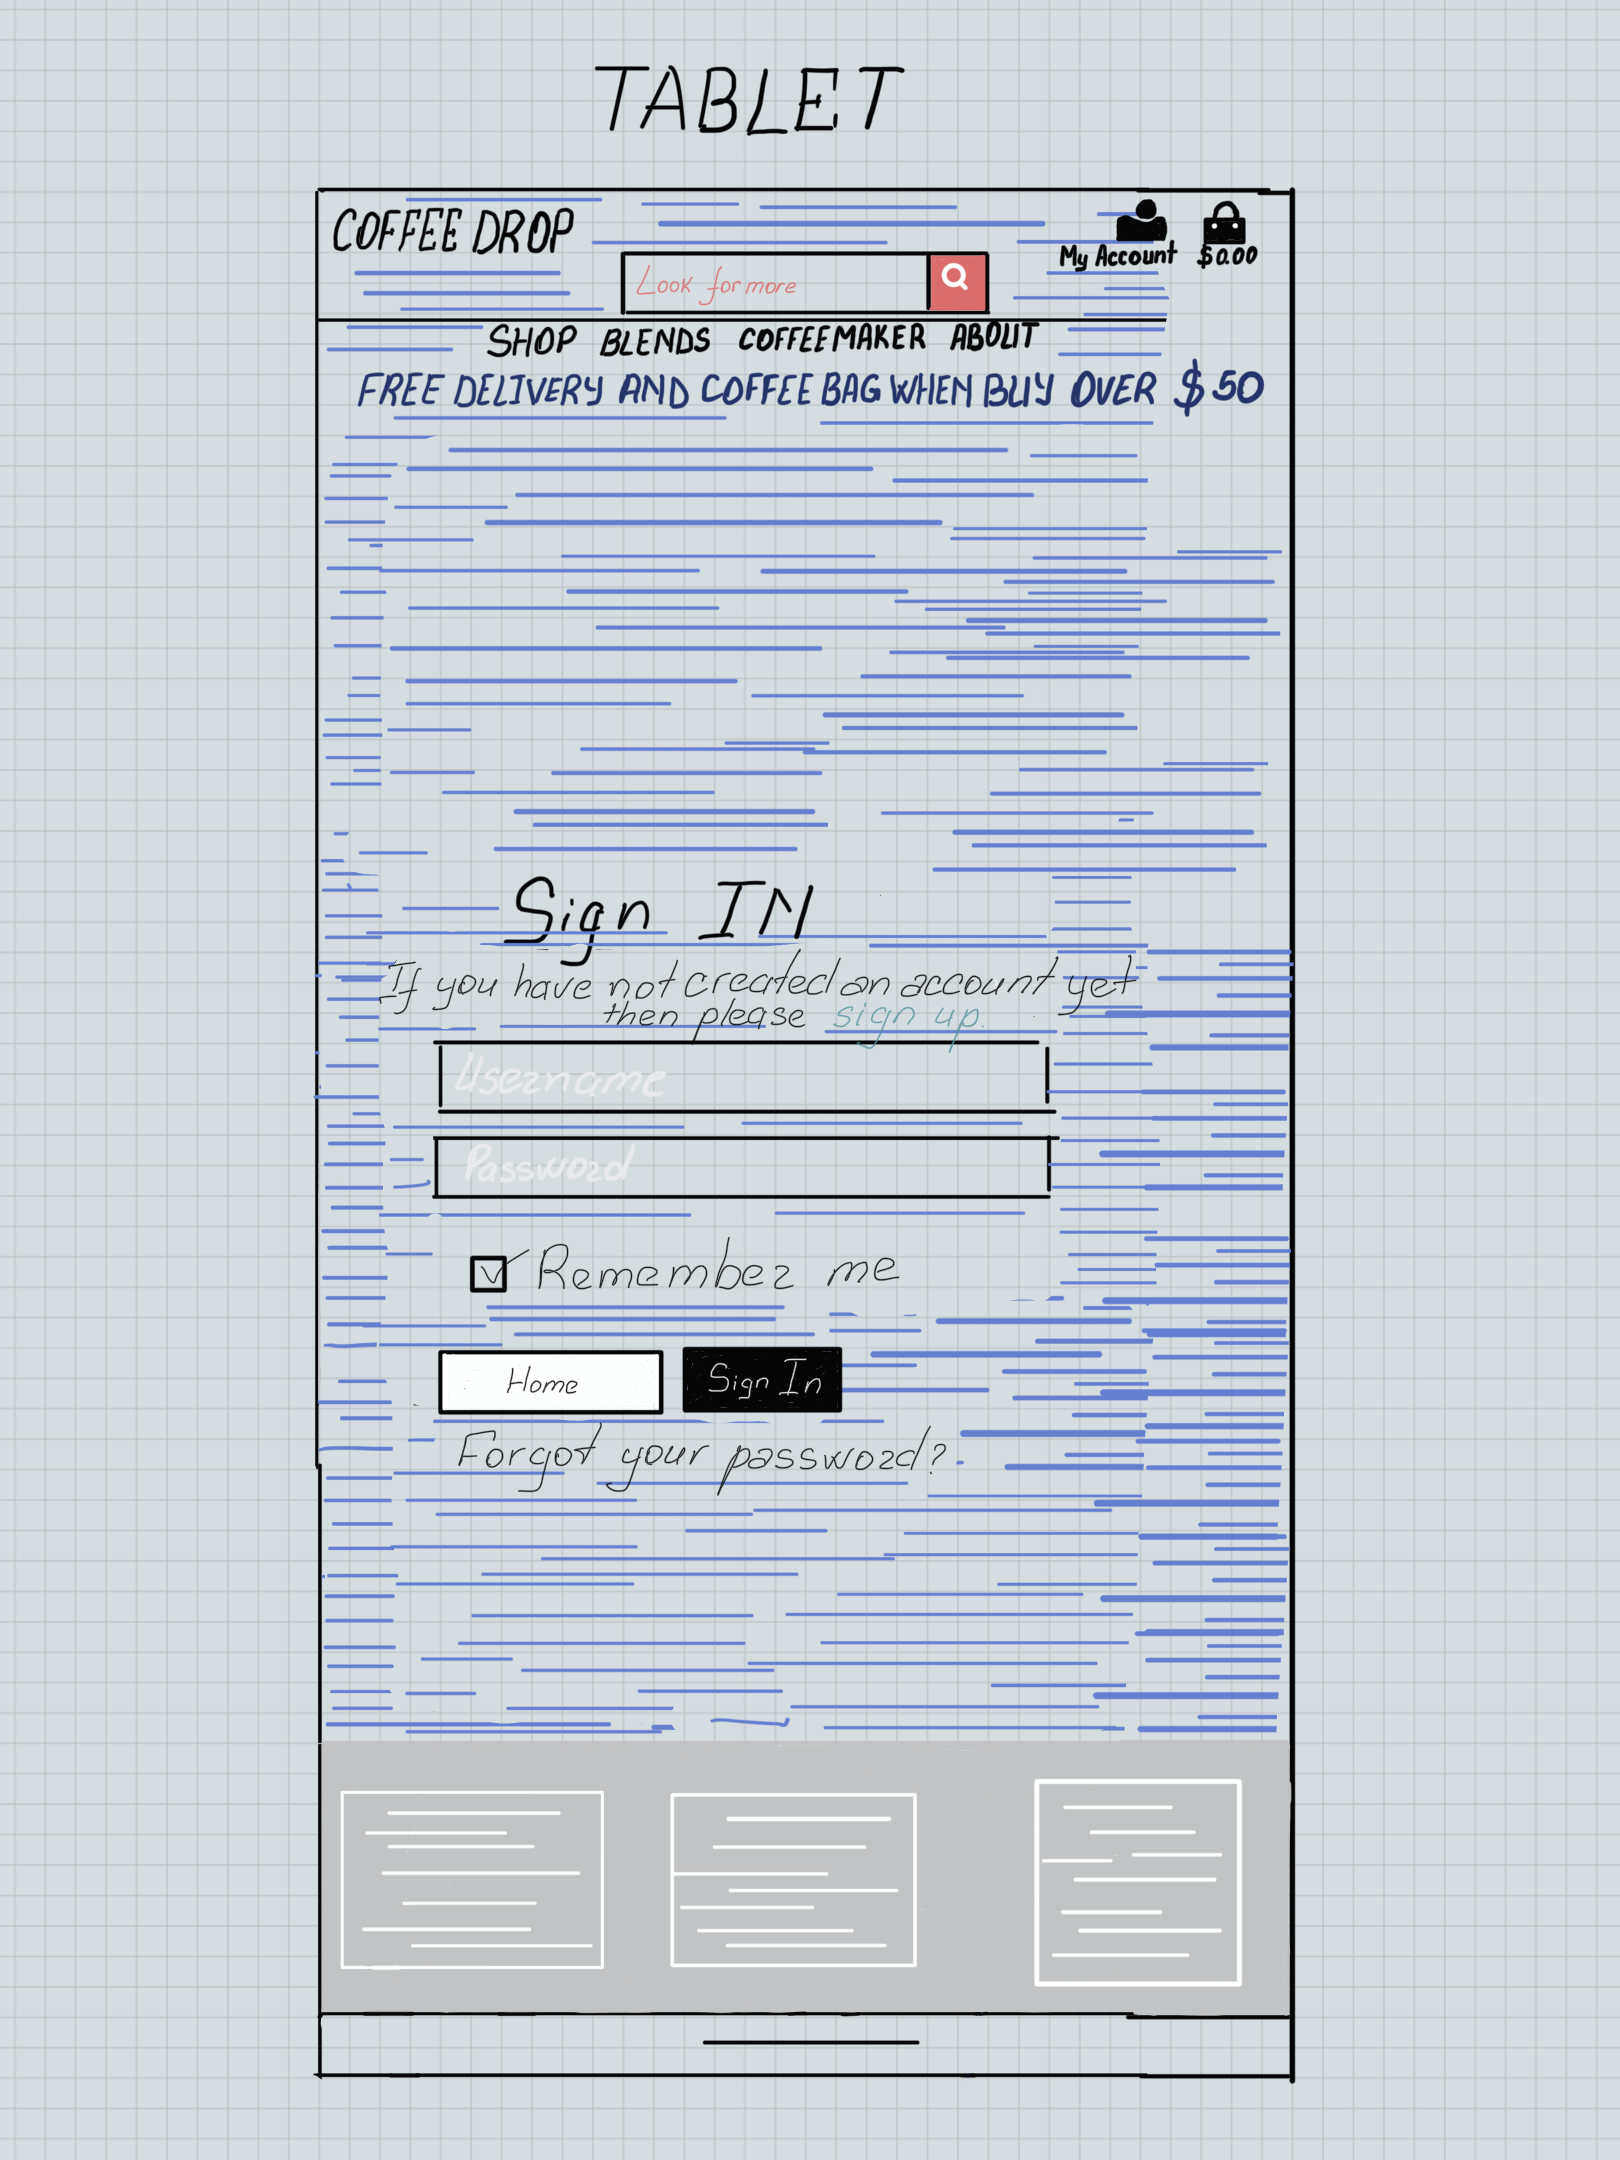 TABLET
COFFEE DROP
My Account $0.00
Look for more
SHOP BLENDS COFFEEMAKER ABOUT
FREE DELIVERY AND COFFEE BAG WHEN BUY OVER $50
Sign IN
If you have not created an account yet
then please sign up.
Username
Password
Remember me
Home Sign In
Forgot your password?